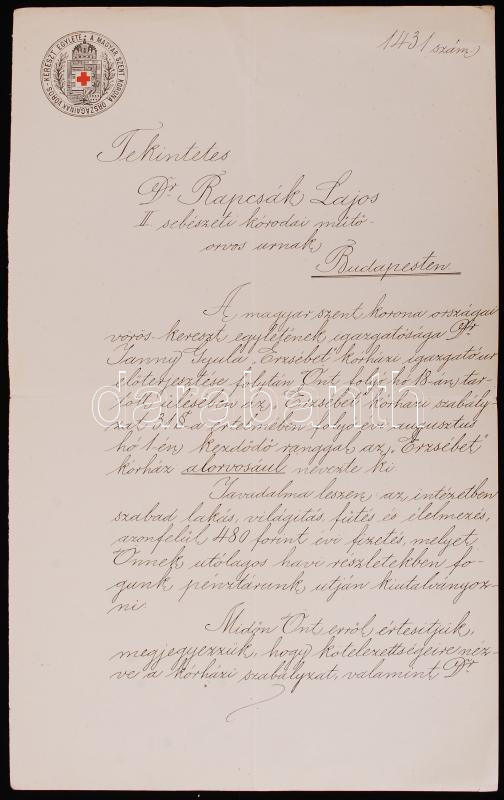 A MAGYAR SZENT KORONA ORSZÁGAINAK VÖRÖS-KERESZT EGYLETE
1431 szám
Tekintetes
Dr Rapcsák Lajos
II sebészeti kórodai műtő-
orvos urnak
Budapesten
A magyar szent korona országai
vörös-kereszt egyletének igazgatósága Dr
Janny Gyula "Erzsébet" korházi igazgató ur
előterjesztése folytán Önt folyó hó 18-án tar-
tott ülésében az "Erzsébet" korházi szabály-
zat §-a értelmében folyó évi augusztus
hó 1-én kezdődő ranggal az "Erzsébet"
korház alorvosául nevezte ki
Javadalma leszen, az intézetben
szabad lakás, világitás, fütés és élelmezés,
azonfelül 480 forint évi fizetés, melyet
Önnek utólagos havi részletekben fo-
gunk pénztárunk utján kiutalványoz-
ni.
Midőn Önt erről értesitjük,
megjegyezzük, hogy kötelezettségeire néz-
ve a kórházi szabályzat, valamint Dr
darabanth